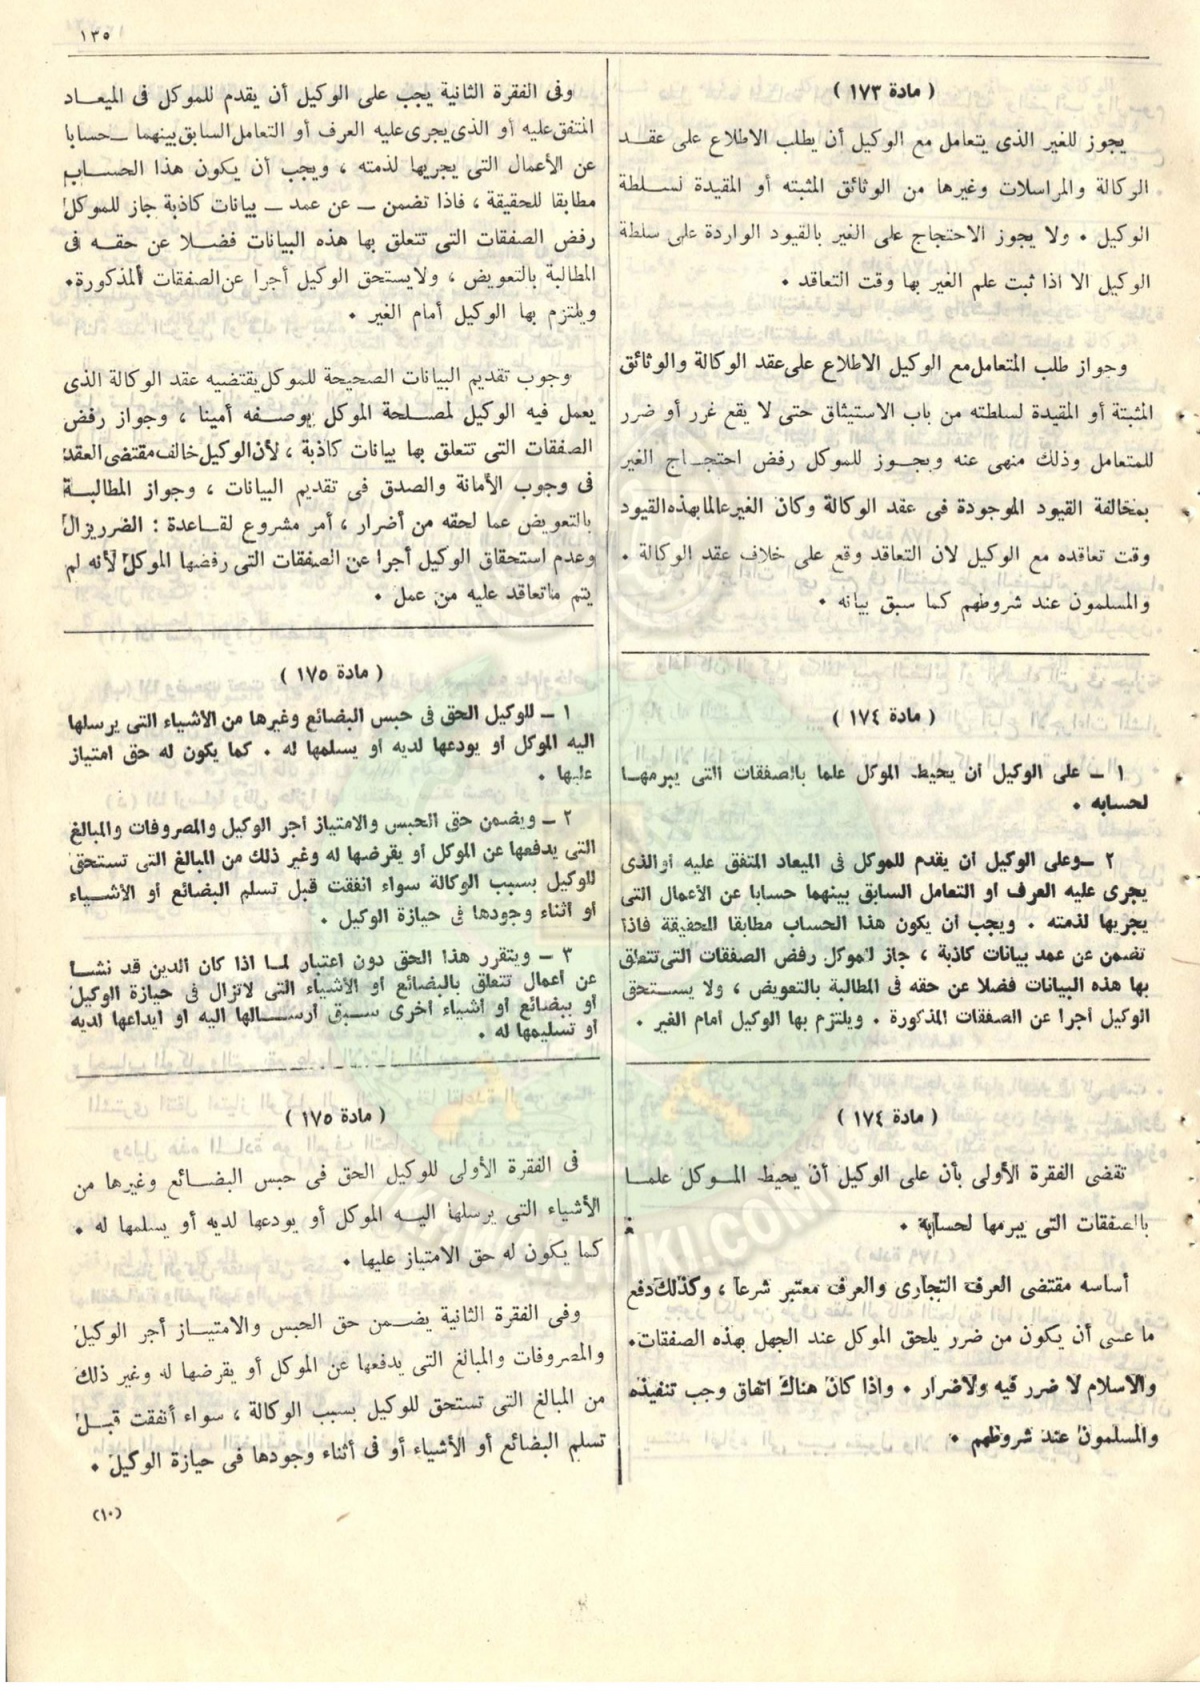 ١٣٥
( مادة ١٧٣ )
يجوز للغير الذى يتعامل مع الوكيل أن يطلب الاطلاع على عقد
الوكالة والمراسلات وغيرها من الوثائق المثبته أو المقيدة لسلطة
الوكيل . ولا يجوز الاحتجاج على الغير بالقيود الواردة على سلطة
الوكيل الا اذا ثبت علم الغير بها وقت التعاقد .
وجواز طلب المتعامل مع الوكيل الاطلاع على عقد الوكالة والوثائق
المثبتة أو المقيدة لسلطته من باب الاستيثاق حتى لا يقع غرر أو ضرر
للمتعامل وذلك منهى عنه ويجوز للموكل رفض احتجاج الغير
بمخالفة القيود الموجودة فى عقد الوكالة وكان الغير عالما بهذه القيود
وقت تعاقده مع الوكيل لان التعاقد وقع على خلاف عقد الوكالة .
والمسلمون عند شروطهم كما سبق بيانه .
( مادة ١٧٤ )
١ – على الوكيل أن يحيط الموكل علما بالصفقات التى يبرمها
لحسابه .
٢ – وعلى الوكيل أن يقدم للموكل فى الميعاد المتفق عليه أو الذى
يجرى عليه العرف أو التعامل السابق بينهما حسابا عن الأعمال التى
يجريها لذمته . ويجب أن يكون هذا الحساب مطابقا للحقيقة فاذا
تضمن عن عمد بيانات كاذبة ، جاز للموكل رفض الصفقات التى تتعلق
بها هذه البيانات فضلا عن حقه فى المطالبة بالتعويض ، ولا يستحق
الوكيل أجرا عن الصفقات المذكورة . ويلتزم بها الوكيل أمام الغير .
( مادة ١٧٤ )
تقضى الفقرة الأولى بأن على الوكيل أن يحيط الموكل علما
بالصفقات التى يبرمها لحسابه .
أساسه مقتضى العرف التجارى والعرف معتبر شرعا ، وكذلك دفع
ما عسى أن يكون من ضرر يلحق الموكل عند الجهل بهذه الصفقات .
والاسلام لا ضرر فيه ولا ضرار . واذا كان هناك اتفاق وجب تنفيذه
والمسلمون عند شروطهم .
وفى الفقرة الثانية يجب على الوكيل أن يقدم للموكل فى الميعاد
المتفق عليه أو الذى يجرى عليه العرف أو التعامل السابق بينهما – حسابا
عن الأعمال التى يجريها لذمته ، ويجب أن يكون هذا الحساب
مطابقا للحقيقة ، فاذا تضمن – عن عمد – بيانات كاذبة جاز للموكل
رفض الصفقات التى تتعلق بها هذه البيانات فضلا عن حقه فى
المطالبة بالتعويض ، ولا يستحق الوكيل أجرا عن الصفقات المذكورة .
ويلتزم بها الوكيل أمام الغير .
وجوب تقديم البيانات الصحيحة للموكل يقتضيه عقد الوكالة الذى
يعمل فيه الوكيل لمصلحة الموكل بوصفه أمينا ، وجواز رفض
الصفقات التى تتعلق بها بيانات كاذبة ، لأن الوكيل خالف مقتضى العقد
فى وجوب الأمانة والصدق فى تقديم البيانات ، وجواز المطالبة
بالتعويض عما لحقه من أضرار ، أمر مشروع لقاعدة : الضرر يزال
وعدم استحقاق الوكيل أجرا عن الصفقات التى رفضها الموكل لأنه لم
يتم ما تعاقد عليه من عمل .
( مادة ١٧٥ )
١ – للوكيل الحق فى حبس البضائع وغيرها من الأشياء التى يرسلها
اليه الموكل أو يودعها لديه أو يسلمها له . كما يكون له حق امتياز
عليها .
٢ – ويضمن حق الحبس والامتياز أجر الوكيل والمصروفات والمبالغ
التى يدفعها عن الموكل أو يقرضها له وغير ذلك من المبالغ التى تستحق
للوكيل بسبب الوكالة سواء انفقت قبل تسلم البضائع أو الأشياء
أو أثناء وجودها فى حيازة الوكيل .
٣ – ويتقرر هذا الحق دون اعتبار لما اذا كان الدين قد نشأ
عن أعمال تتعلق بالبضائع أو الأشياء التى لاتزال فى حيازة الوكيل
أو ببضائع أو أشياء أخرى سبق ارسالها اليه أو ايداعها لديه
أو تسليمها له .
( مادة ١٧٥ )
فى الفقرة الأولى للوكيل الحق فى حبس البضائع وغيرها من
الأشياء التى يرسلها اليه الموكل أو يودعها لديه أو يسلمها له .
كما يكون له حق الامتياز عليها .
وفى الفقرة الثانية يضمن حق الحبس والامتياز أجر الوكيل
والمصروفات والمبالغ التى يدفعها عن الموكل أو يقرضها له وغير ذلك
من المبالغ التى تستحق للوكيل بسبب الوكالة ، سواء أنفقت قبل
تسلم البضائع أو الأشياء أو فى أثناء وجودها فى حيازة الوكيل .
(١٠)